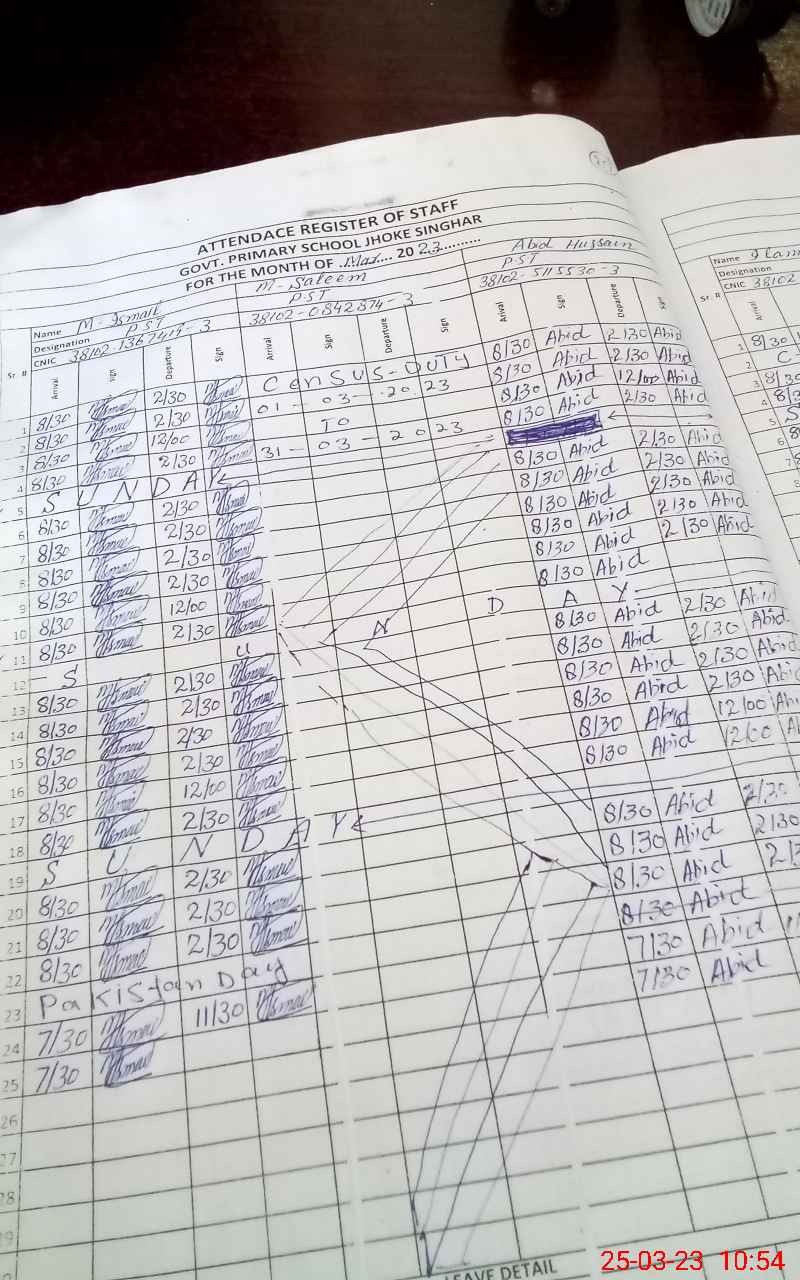 ATTENDACE REGISTER OF STAFF
GOVT. PRIMARY SCHOOL JHOKE SINGHAR
FOR THE MONTH OF .Mar.... 2023..........
Name M-Ismail M-Saleem Abid Hussain
Designation PST PST PST
CNIC 38102-1367419-3 38102-0842874-3 38102-5115530-3
Sr. # Arrival Sign Departure Sign Arrival Sign Departure Sign Arrival Sign Departure
1 8/30 2/30 Census-Duty 8/30 Abid 2/30 Abid
2 8/30 2/30 01-03-2023 8/30 Abid 2/30 Abid
3 8/30 12/00 To 8/30 Abid 12/00 Abid
4 8/30 2/30 31-03-2023 8/30 Abid 2/30 Abid
5 SUNDAY
6 8/30 2/30 8/30 Abid 2/30 Abid
7 8/30 2/30 8/30 Abid 2/30 Abid
8 8/30 2/30 8/30 Abid 2/30 Abid
9 8/30 2/30 8/30 Abid 2/30 Abid
10 8/30 12/00 8/30 Abid 2/30 Abid
11 8/30 2/30 8/30 Abid
12 S U N D A Y
13 8/30 2/30 8/30 Abid 2/30 Abid
14 8/30 2/30 8/30 Abid 2/30 Abid
15 8/30 2/30 8/30 Abid 2/30 Abid
16 8/30 2/30 8/30 Abid 2/30 Abid
17 8/30 12/00 8/30 Abid 12/00 Abid
18 8/30 2/30 8/30 Abid 12/00 Abid
19 S U N D A Y
20 8/30 2/30 8/30 Abid 2/30
21 8/30 2/30 8/30 Abid 2/30
22 8/30 2/30 8/30 Abid
23 Pakistan Day 8/30 Abid
24 7/30 11/30 7/30 Abid
25 7/30 7/30 Abid
26
27
28
LEAVE DETAIL
Name
Designation
CNIC 38102
Sr. # Arrival
1 8/30
2
3 8/30
4
5
6
25-03-23 10:54